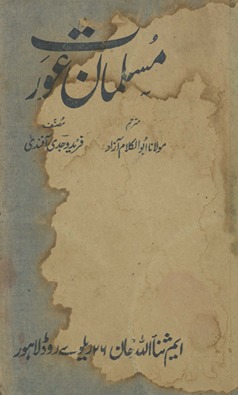 مسلمان عورت
مصنف
مترجم
فرید وجدی آفندی
مولانا ابوالکلام آزاد
ایم ثناء اللہ خان ۲۶ ریلوے روڈ لاہور